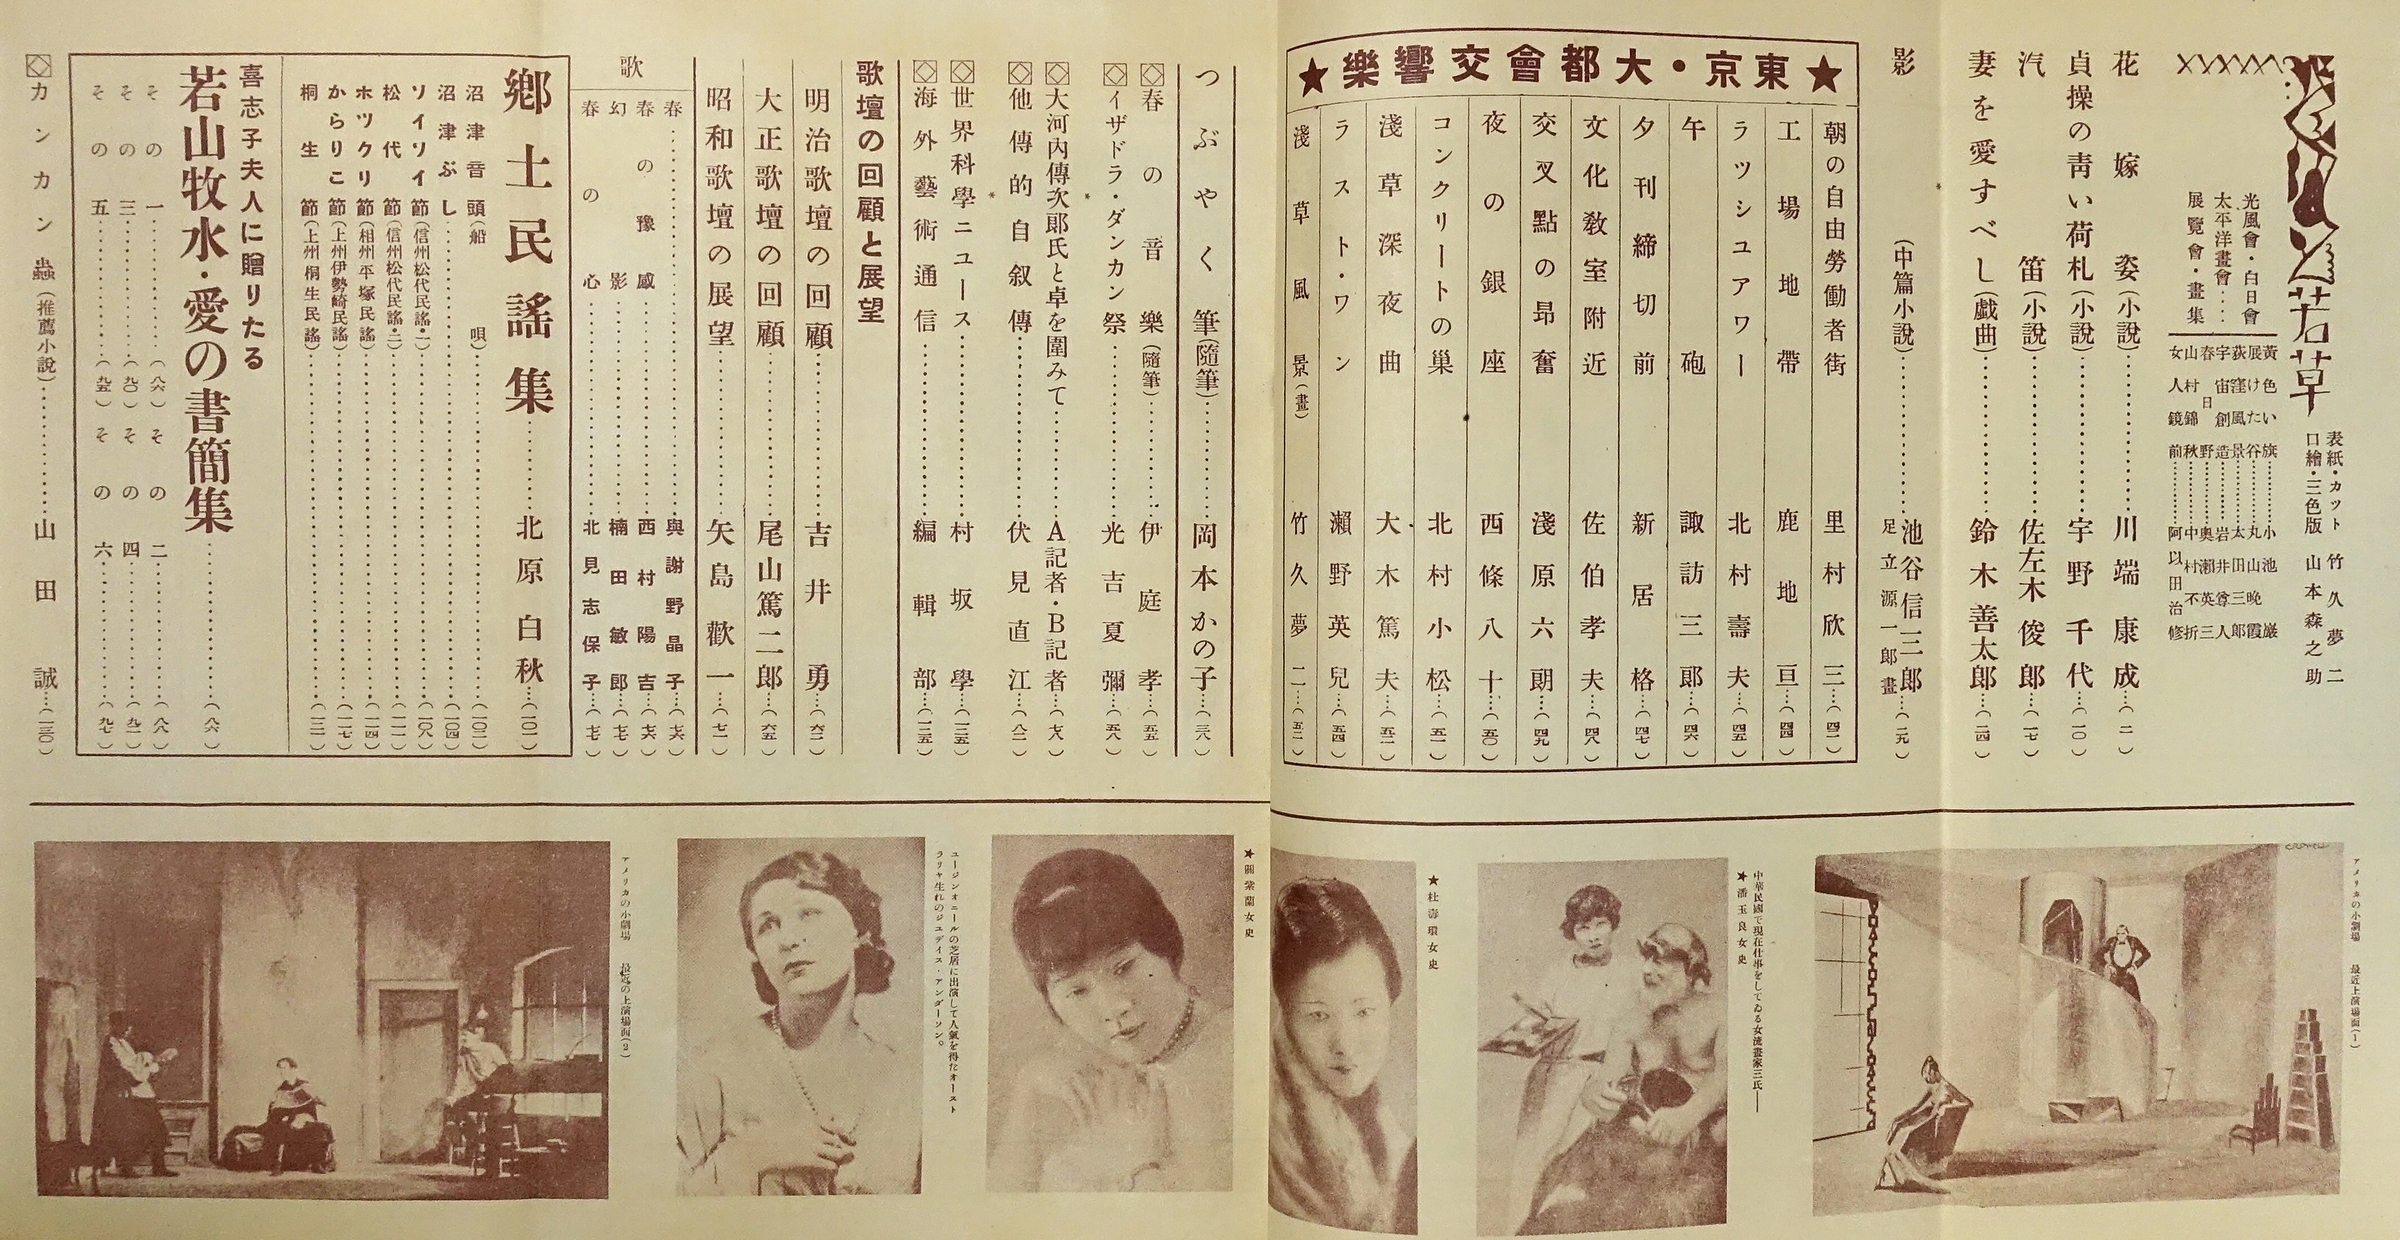 若草
表紙・カット 竹久夢二
口繪・三色版 山本森之助
光風會・白日會
太平洋畫會……
展覽會・畫集
黃色い旗……小池巖
展けたい谷……丸山晩霞
荻窪風景……太田三郎
宇宙創造……岩井尊人
春日野……奥瀬英三
山村錦秋……中村不折
女人鏡前……阿以田治修
花嫁姿(小說)……川端康成…(二)
貞操の靑い荷札(小說)……宇野千代…(一〇)
汽笛(小說)……佐左木俊郎…(一七)
妻を愛すべし(戲曲)……鈴木善太郎…(二四)
影(中篇小說)……池谷信三郎…(二九)
足立源一郎畫
★東京・大都會交響樂★
朝の自由勞働者街 里村欣三…(四二)
工場地帶 鹿地亘…(四四)
ラッシュアワー 北村壽夫…(四五)
午砲 諏訪三郎…(四六)
夕刊締切前 新居格…(四七)
文化敎室附近 佐伯孝夫…(四八)
交叉點の昻奮 淺原六朗…(四九)
夜の銀座 西條八十…(五〇)
コンクリートの巢 北村小松…(五一)
淺草深夜曲 大木篤夫…(五二)
ラスト・ワン 瀨野英兒…(五四)
淺草風景(畫) 竹久夢二…(五二)
つぶやく筆(隨筆)……岡本かの子…(三八)
春の音樂(隨筆)……伊庭孝…(五五)
イザドラ・ダンカン祭……光吉夏彌…(五八)
大河內傳次郎氏と卓を圍みて……A記者・B記者…(七八)
他傳的自叙傳……伏見直江…(八二)
世界科學ニュース……村坂學…(三五)
海外藝術通信……編輯部…(三五)
歌壇の回顧と展望
明治歌壇の回顧……吉井勇…(六二)
大正歌壇の回顧……尾山篤二郎…(六五)
昭和歌壇の展望……矢島歡一…(七一)
歌
春……與謝野晶子…(七六)
春の豫感……西村陽吉…(七六)
幻影……楠田敏郎…(七七)
春の心……北見志保子…(七七)
鄕土民謠集……北原白秋…(一〇一)
沼津音頭(船唄)……(一〇二)
沼津ぶし……(一〇四)
ソイソイ節(信州松代民謠・一)……(一〇八)
松代節(信州松代民謠・二)……(一一一)
ホックリ節(相州平塚民謠)……(一一四)
からりこ節(上州伊勢崎民謠)……(一一七)
桐生節(上州桐生民謠)……(一二一)
喜志子夫人に贈りたる
若山牧水・愛の書簡集……(八六)
その一……(八六) その二……(八八)
その三……(九〇) その四……(九二)
その五……(九五) その六……(九七)
カンカン蟲(推薦小說)……山田誠…(一三〇)
アメリカの小劇場 最近上演場面(1)
中華民國で現在仕事をしてゐる女流畫家三氏――
★潘玉良女史
★杜濤環女史
★關紫蘭女史
ユージンオニールの芝居に出演して人氣を得たオースト
ラリヤ生れのジュディス・アンダーソン。
アメリカの小劇場 最近の上演場面(2)